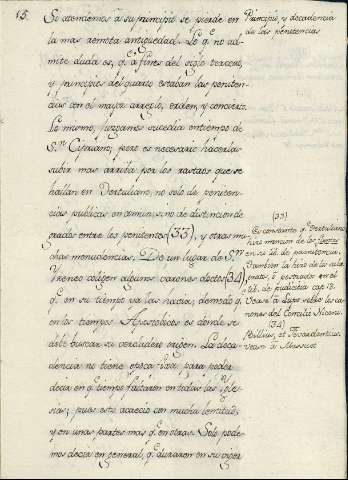 15.
Si atendemos à su principio se pierde en
la mas remota antiguedad. Lo q.e no ad-
mite duda es, q.e à fines del siglo tercero,
y principios del quarto estaban las peniten-
cias con el mayor arreglo, orden, y concierto.
Lo mismo, juzgamos sucedia en tiempo de
S.n Cypriano; pero es necesario hacerlas
subir mas arriba por los rastros que se
hallan en Tertuliano, no solo de peniten-
cias publicas en comun, si no de distincion de
grados entre los penitentes (33), y otras mu-
chas menudencias. De un lugar de S.n
Yreneo coligen algunos varones doctos (34)
q.e en su tiempo ya las havia, de modo q.e
en los tiempos Apostolicos es donde se
debe buscar su verdadero origen. La deca-
dencia no tiene epoca fixa para poder
decir en q.e tiempo faltaron en todas las Ygle-
sias; pues esto acaeció con mucha lentitud,
y en unas partes mas q.e en otras. Solo pode-
mos decir en general, q.e duraron en su vigor
Principio, y decadencia
de las penitencias
(33)
Es constante q.e Tertuliano
hizo mencion de los
en su lib. de paenitencia.
Tambien la hizo de los
ò postrados en el
lib. de pudicitia cap. 13.
Vease à sobre los ca-
nones del Concilio Niceno.
(34)
Billius, et Feuardentius.